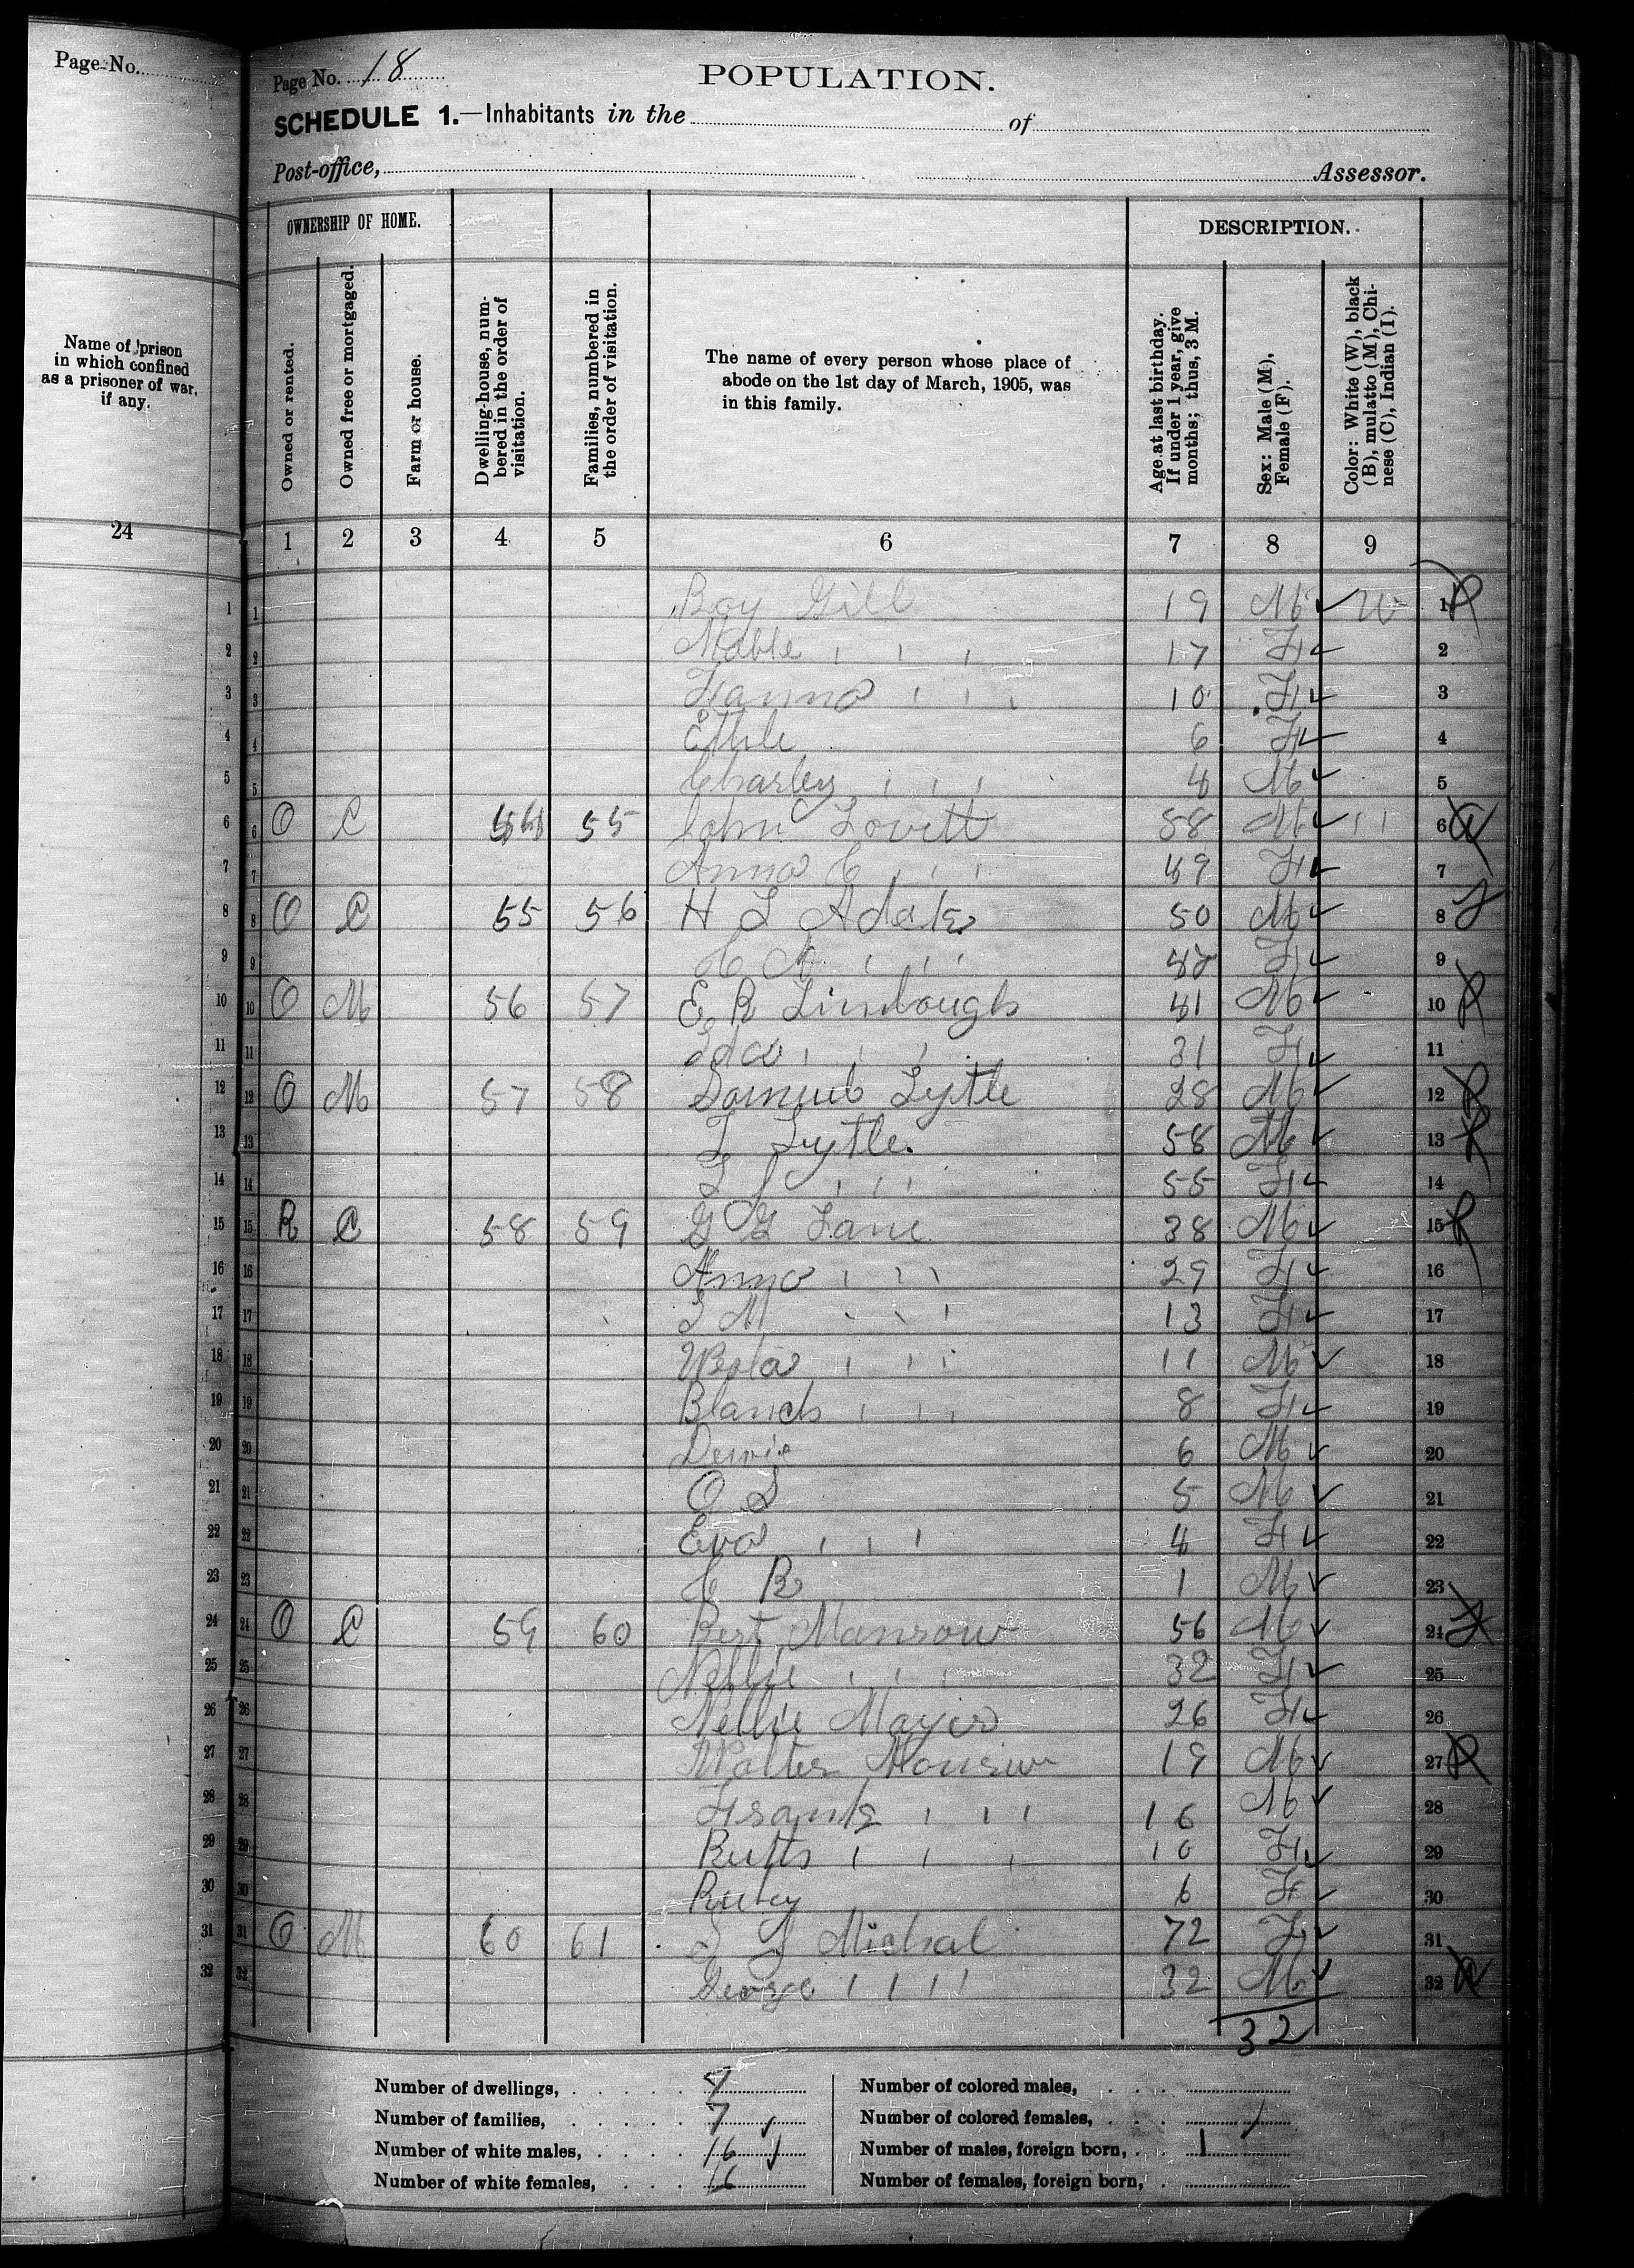 Page No.
Name of prison
in which confined
as a prisoner of war,
if any.
24
Page No. 18
POPULATION.
SCHEDULE 1.—Inhabitants in the of
Post-office, Assessor.
OWNERSHIP OF HOME.
DESCRIPTION.
Owned or rented.
Owned free or mortgaged.
Farm or house.
Dwelling-house, num-
bered in the order of
visitation.
Families, numbered in
the order of visitation.
The name of every person whose place of
abode on the 1st day of March, 1905, was
in this family.
Age at last birthday.
If under 1 year, give
months; thus, 3 M.
Sex: Male (M),
Female (F).
Color: White (W), black
(B), mulatto (M), Chi-
nese (C), Indian (I).
1 2 3 4 5 6 7 8 9
1 1 Roy Gill 19 M W 1
2 2 Mable " 17 F 2
3 3 10 F 3
4 4 Ethle 6 F 4
5 5 Charley " 4 M 5
6 6 O C 54 55 John Lovett 58 M " 6
7 7 Anna C " 49 F 7
8 8 O C 55 56 H L 50 M 8
9 9 " F 9
10 10 O M 56 57 E R Limbough 41 M 10
11 11 Ida " 31 F 11
12 12 O M 57 58 Samuel Lytle 28 M 12
13 13 L Lytle. 58 M 13
14 14 " 55 F 14
15 15 R C 58 59 G G Lane 38 M 15
16 16 Anna " 29 F 16
17 17 M " 13 F 17
18 18 " 11 M 18
19 19 Blanch " 8 F 19
20 20 6 M 20
21 21 O L 5 M 21
22 22 Eva " 4 F 22
23 23 C R 1 M 23
24 24 O C 59 60 Bert 56 M 24
25 25 Nellie " 32 F 25
26 26 Nellie Mayer 26 F 26
27 27 Walter 19 M 27
28 28 Frank " 16 M 28
29 29 Ruth " 10 F 29
30 30 Ruby 6 F 30
31 31 O M 60 61 Michal 72 F 31
32 32 George " 32 M 32
32
Number of dwellings, 7
Number of families, 7
Number of white males, 16
Number of white females, 16
Number of colored males,
Number of colored females,
Number of males, foreign born, 1
Number of females, foreign born,